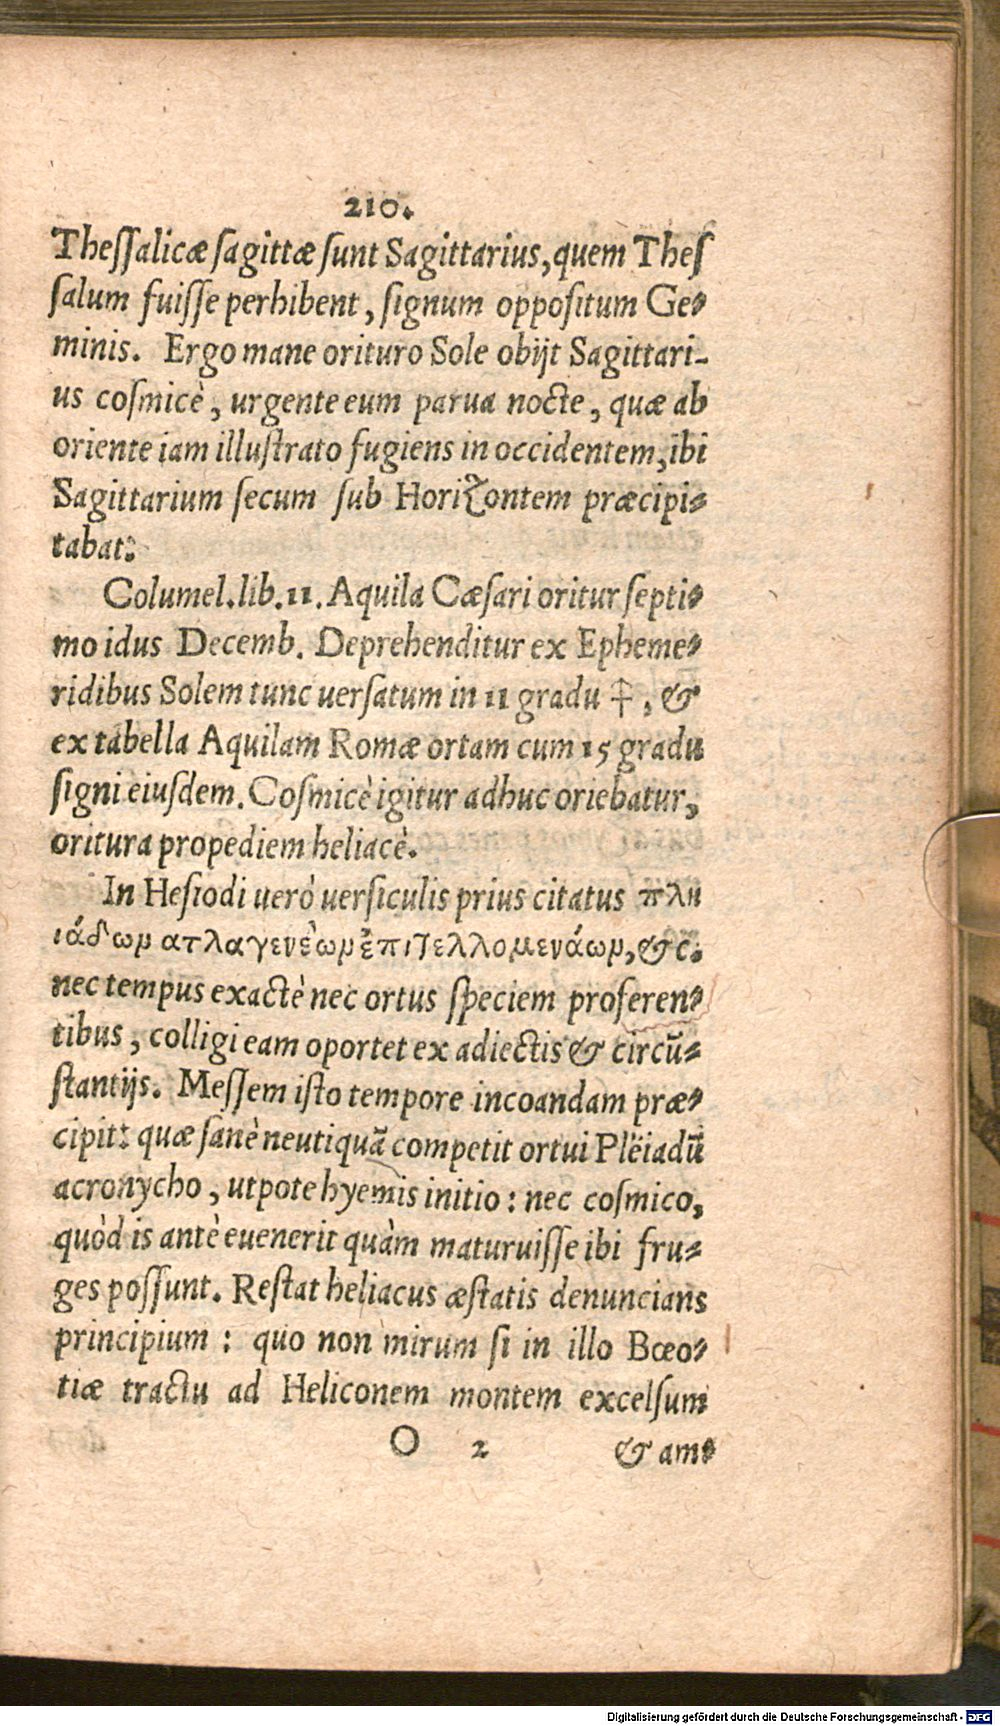 210.
Theſſalicæ ſagittæ ſunt Sagittarius, quem Theſ
ſalum fuiſſe perhibent, ſignum oppoſitum Ge-
minis. Ergo mane orituro Sole obijt Sagittari-
us coſmicè, urgente eum parua nocte, quæ ab
oriente iam illuſtrato fugiens in occidentem, ibi
Sagittarium ſecum ſub Horizontem præcipi-
tabat.
Columel. lib. 11. Aquila Cæſari oritur ſepti-
mo idus Decemb. Deprehenditur ex Epheme-
ridibus Solem tunc uerſatum in 11 gradu ♐, &
ex tabella Aquilam Romæ ortam cum 15 gradu
ſigni eiuſdem. Coſmicè igitur adhuc oriebatur,
oritura propediem heliacè.
In Heſiodi uerò uerſiculis prius citatus πλη
ιάδων ατλαγενέων ἐπιτελλομενάων, &c.
nec tempus exactè nec ortus ſpeciem proferen-
tibus, colligi eam oportet ex adiectis & circũ-
ſtantijs. Meſſem iſto tempore incoandam præ-
cipit: quæ ſanè neutiquã competit ortui Plëiadũ
acronycho, utpote hyemis initio: nec coſmico,
quòd is antè euenerit quàm maturuiſſe ibi fru-
ges poſſunt. Reſtat heliacus æſtatis denuncians
principium: quo non mirum ſi in illo Bœo-
tiæ tractu ad Heliconem montem excelſum
O 2 & am-
Digitalisierung gefördert durch die Deutsche Forschungsgemeinschaft - DFG